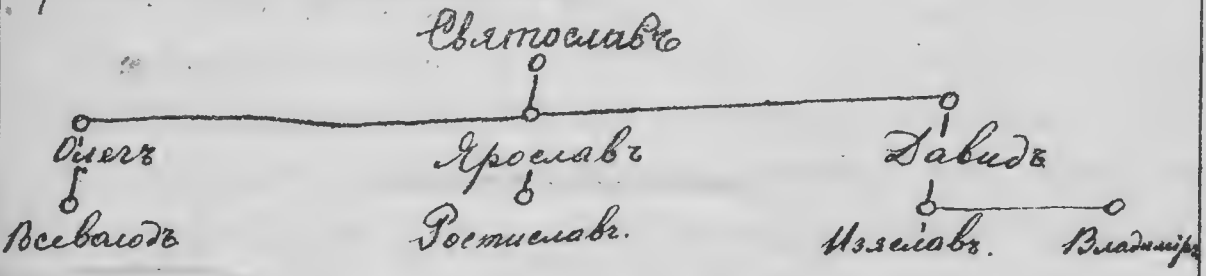 Святославъ
Олегъ Ярославъ Давидъ
Всеволодъ Ростиславъ. Изяславъ. Владиміръ